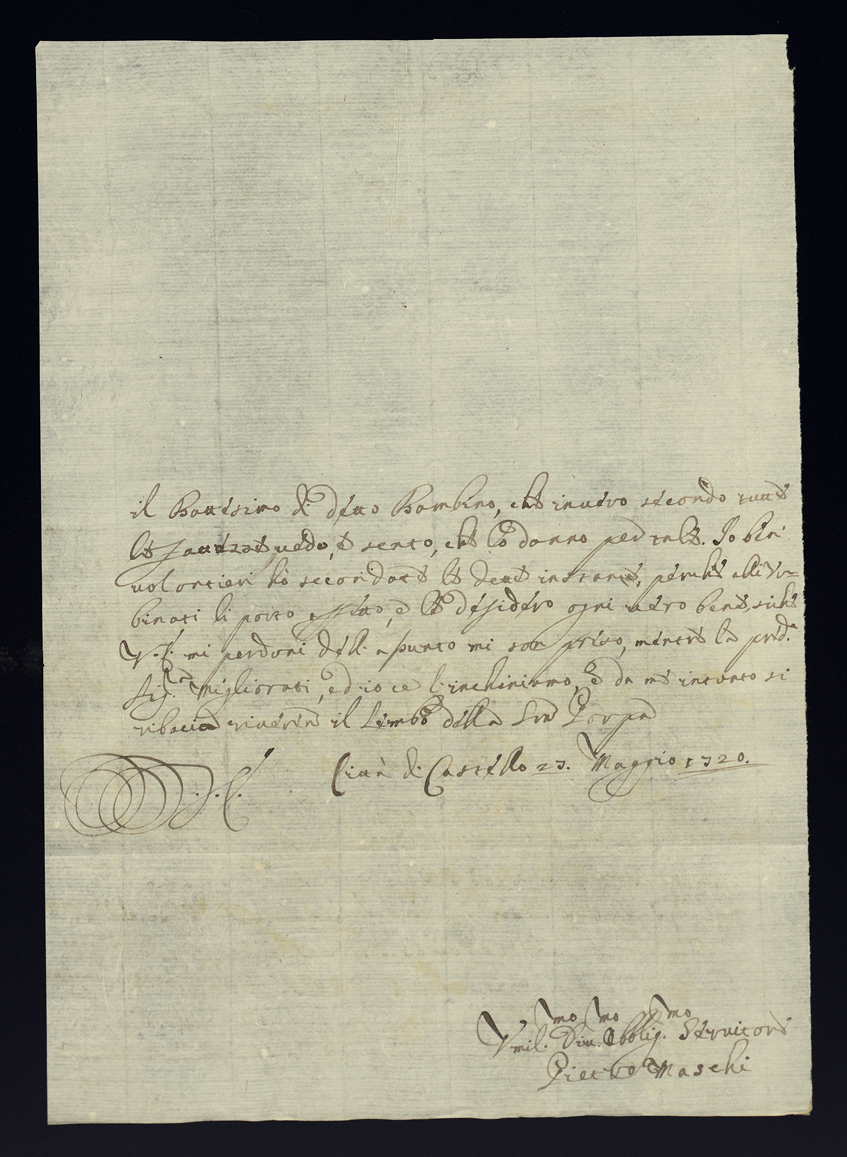 il Battesimo di detto Bambino, che invero secondo tutte
le fattezze vedo, e sento, che lo danno per tale. Io ben
volontieri hò secondate le dette instanze, perche alli Ur=
binati li porto affetto, e le desidero ogni vero bene, siche
V. S. mi perdoni dell' apunto mi son preso, mentre la pred.ª
Sig.ra Migliorati, ed io ce l'inchiniamo, e da me intanto si
ribacia il Lembo della Sua Porpa
Città di Castello 23. Maggio 1720.
Vmil.mo Div.mo Obblig.mo Servitore
Pietro Maschi